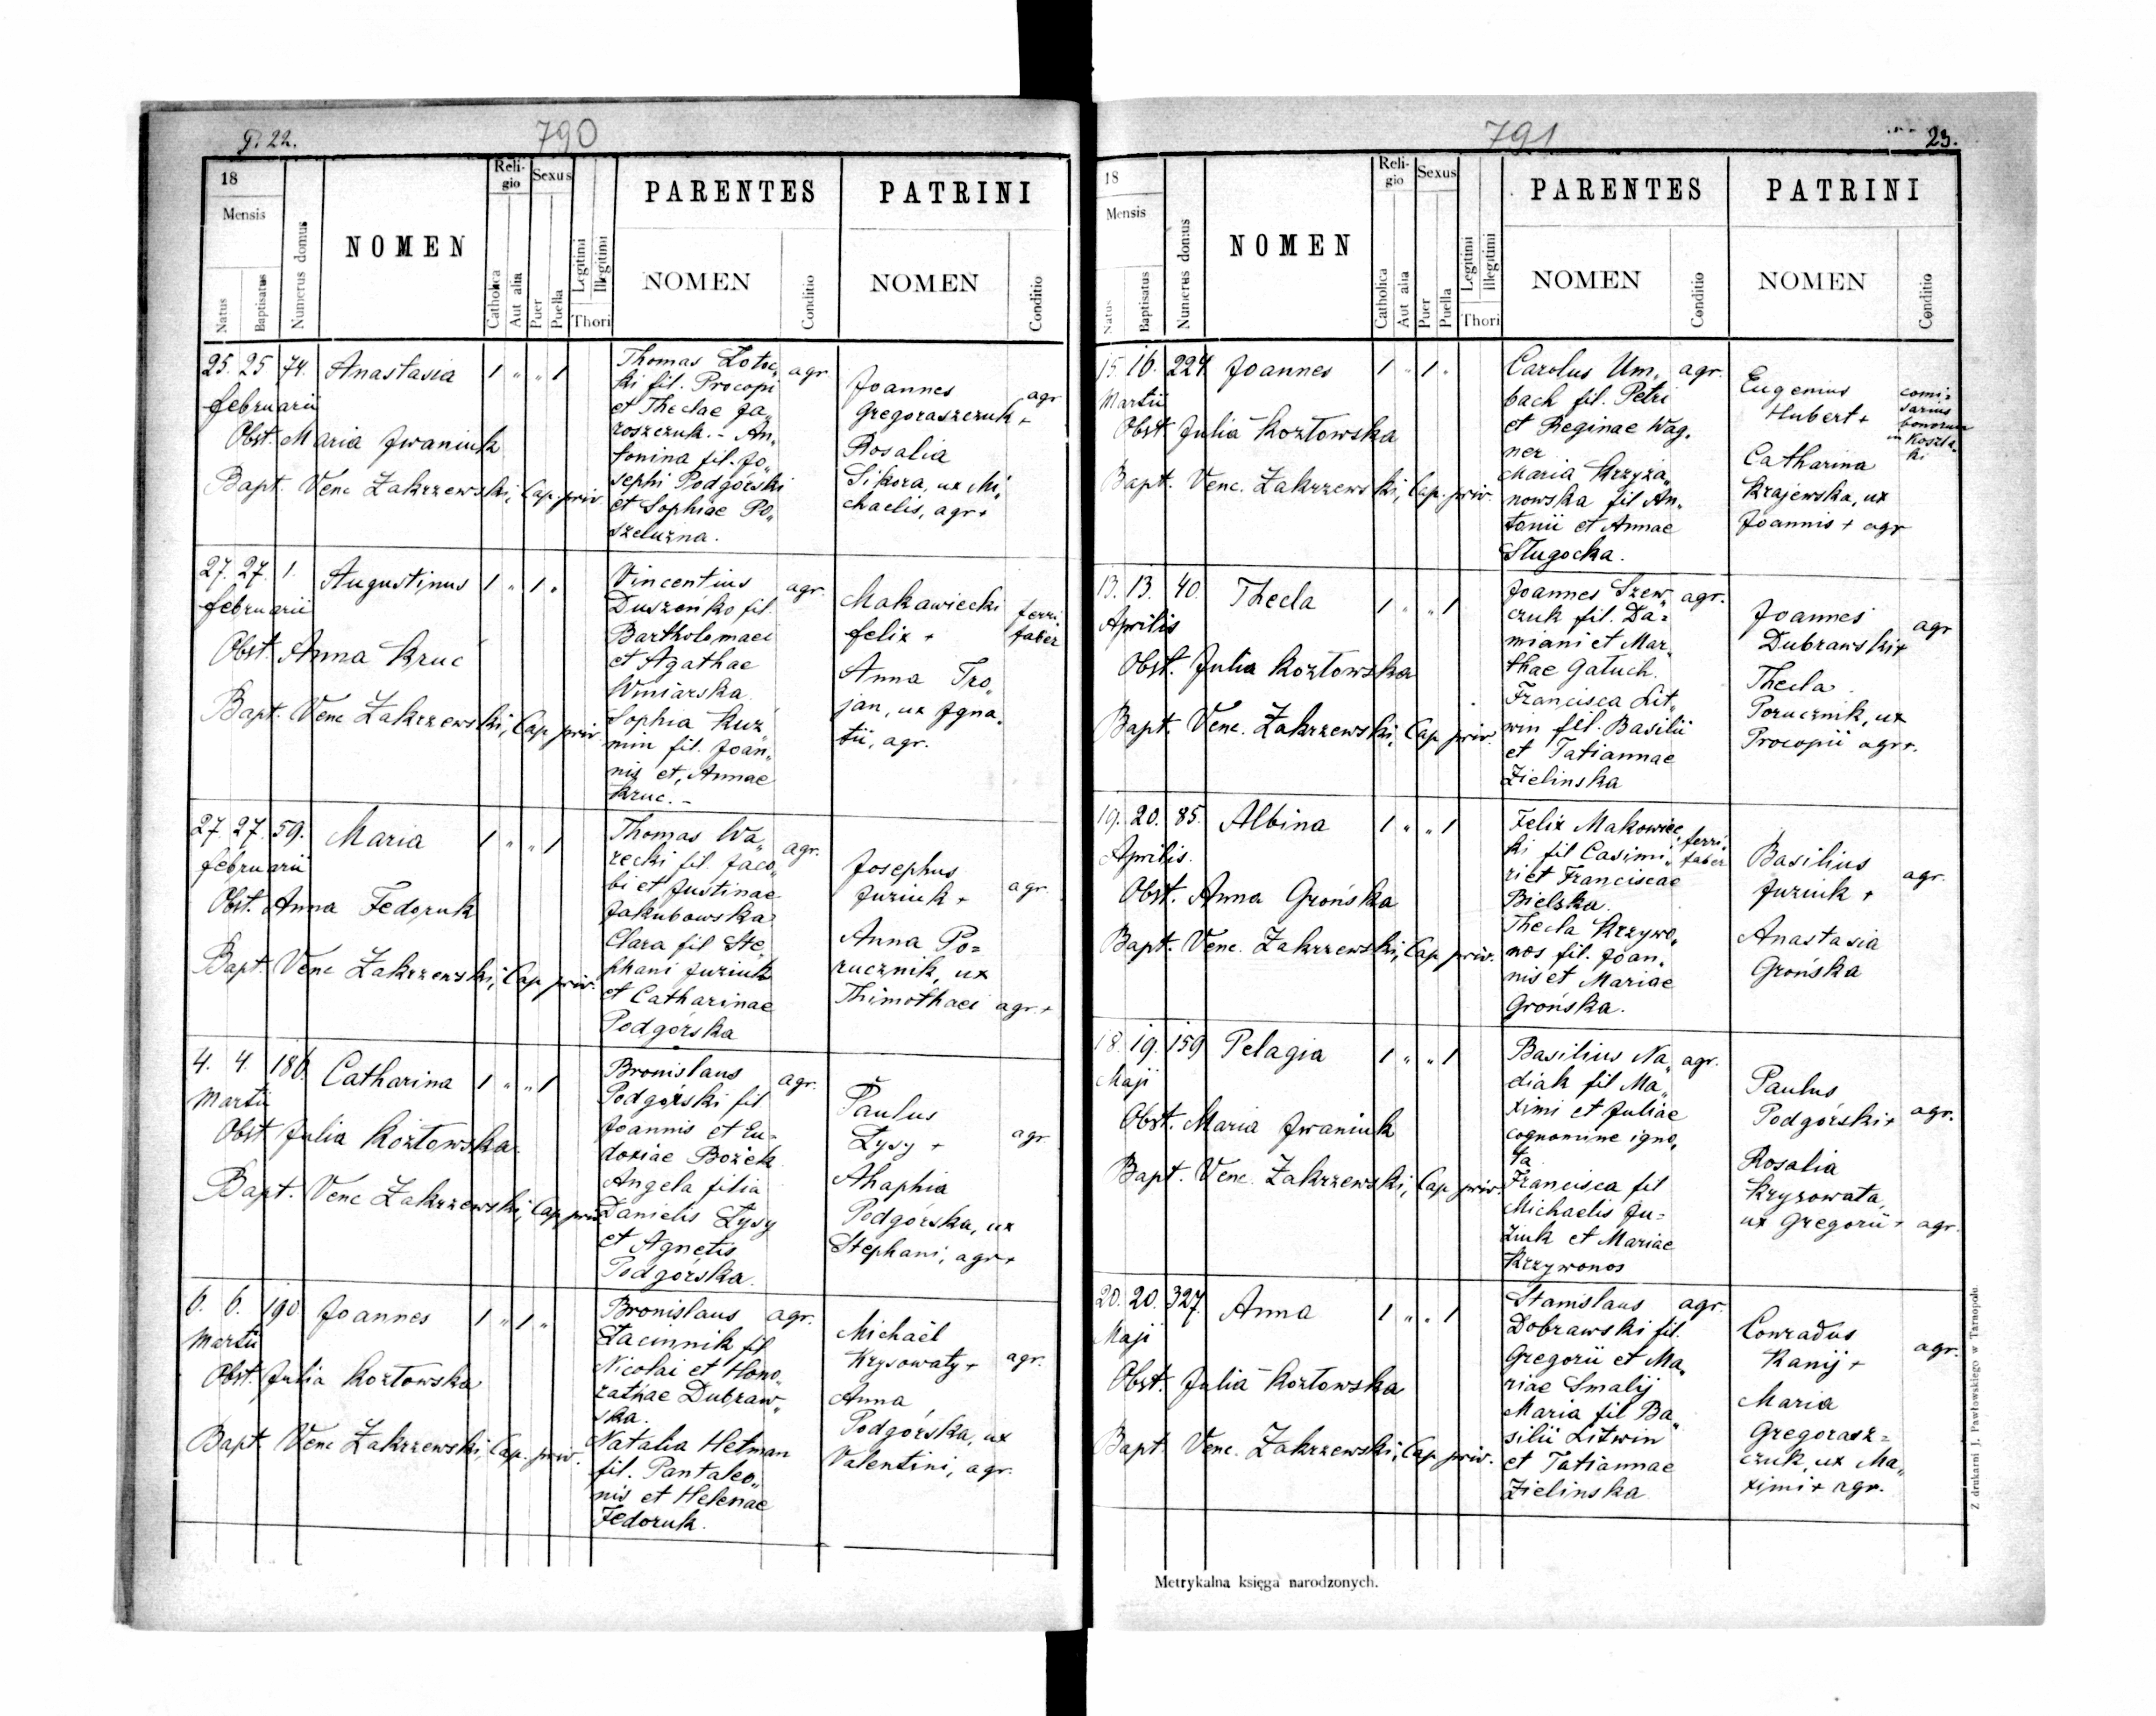 P. 22.
790
18
Mensis
Natus
Baptisatus
Numerus domus
NOMEN
Religio
Catholica
Aut alia
Sexus
Puer
Puella
Legitimi
Illegitimi
Thori
PARENTES
NOMEN
Conditio
PATRINI
NOMEN
Conditio
25. 25 74. Anastasia 1 " " 1
februarii
Obst. Maria Iwaniuk
Bapt. Venc Zakrzewski, Cap. priv
Thomas Zotoc„ agr.
ki fil. Procopi
et Theclae Ja„
roszczuk. - An„
tonina fil. Jo„
sephi Podgórski
et Sophiae Po„
szeluzna.
Joannes agr
Gregoraszczuk +
Rosalia
Sikora, ux Mi„
chaelis, agr +
27. 27. 1. Augustinus 1 " 1 "
februarii
Obst. Anna Kruc
Bapt. Venc Zakrzewski, Cap priv
Vincentius agr.
Duszeńko fil.
Bartholomaei
et Agathae
Winiarska.
Sophia Kuz„
min fil. Joan„
nis et Annae
Kruc. -
Makawiecki ferri„
felix + faber
Anna Tro„
jan, ux Igna„
tii, agr.
27. 27. 59. Maria 1 " " 1
februarii
Obst. Anna Fedoruk
Bapt. Venc Zakrzewski, Cap priv.
Thomas Wa„ agr.
recki fil. Jaco„
bi et Justinae
Jakubowska
Clara fil Ste„
phani Juziuk
et Catharinae
Podgórska
Josephus
Juziuk + agr.
Anna Po=
rucznik, ux
Thimothaei agr. +
4. 4. 186. Catharina 1 " " 1
Martii
Obst Julia Kozłowska
Bapt. Venc Zakrzewski, Cap priv
Bronislaus agr.
Podgórski fil
Joannis et Eu=
doxiae Bozek
Angela filia
Danielis Łysy
et Agnetis
Podgórska.
Paulus
Łysy + agr
Ahaphia
Podgórska, ux
Stephani, agr +
6. 6. 190 Joannes 1 " 1 "
Martii
Obst. Julia Kozłowska
Bapt. Venc Zakrzewski, Cap. priv.
Bronislaus agr.
Łacinnik fil
Nicolai et Hono„
rathae Dubraw„
ska.
Natalia Hetman
fil. Pantaleo„
nis et Helenae
Fedoruk.
Michaël
Krysowaty + agr.
Anna
Podgórska, ux
Valentini, agr.
791
23.
18
Mensis
Natus
Baptisatus
Numerus domus
NOMEN
Religio
Catholica
Aut alia
Sexus
Puer
Puella
Legitimi
Illegitimi
Thori
PARENTES
NOMEN
Conditio
PATRINI
NOMEN
Conditio
15. 16. 224 Joannes 1 " 1 "
Martii
Obst. Julia Kozłowska
Bapt. Venc. Zakrzewski, Cap. priv.
Carolus Um„ agr.
bach fil. Petri
et Reginae Wag„
ner
Maria Krzyża„
nowska fil An„
tonii et Annae
Sługocka.
Eugenius comi=
Hubert + sarius
bonorum
in Koszla„
ki
Catharina
Krajewska, ux
Joannis + agr
13. 13. 40. Thecla 1 " " 1
Aprilis
Obst. Julia Kozłowska
Bapt. Venc. Zakrzewski, Cap priv.
Joannes Szew„ agr.
czuk fil. Da=
miani et Mar„
thae Gałuch.
Francisca Lit„
win fil. Basilii
et Tatiannae
Zielinska
Joannes agr
Dubrawski +
Thecla
Porucznik, ux
Procopii agr +.
19. 20. 85. Albina 1 " " 1
Aprilis.
Obst. Anna Grońska
Bapt. Venc. Zakrzewski, Cap priv.
Felix Makowiec„ ferri„
ki fil Casimi„ faber
ri et Franciscae
Bielska.
Thecla Krzywo„
nos fil. Joan„
nis et Mariae
Grońska.
Basilius agr.
Juziuk +
Anastasia
Grońska
18. 19. 159 Pelagia 1 " " 1
Maji
Obst. Maria Iwaniuk
Bapt. Venc. Zakrzewski, Cap priv.
Basilius Na„ agr.
diak fil Ma„
ximi et Juliae
cognomine igno„
ta
Francisca fil
Michaelis Ju=
ziuk et Mariae
Krzywonos
Paulus
Podgórski + agr.
Rosalia
Kryzowata,
ux Gregorii + agr.
20. 20. 327. Anna 1 " " 1
Maji
Obst. Julia Kozłowska
Bapt. Venc. Zakrzewski, Cap priv.
Stanislaus agr.
Dobrawski fil.
Gregorii et Ma„
riae Smalij
Maria fil Ba„
silii Litwin
et Tatiannae
Zielinska
Conradus
Kanij + agr.
Maria
Gregorasz=
czuk, ux Ma„
ximi + agr.
Metrykalna księga narodzonych.
Z drukarni J. Pawłowskiego w Tarnopolu.